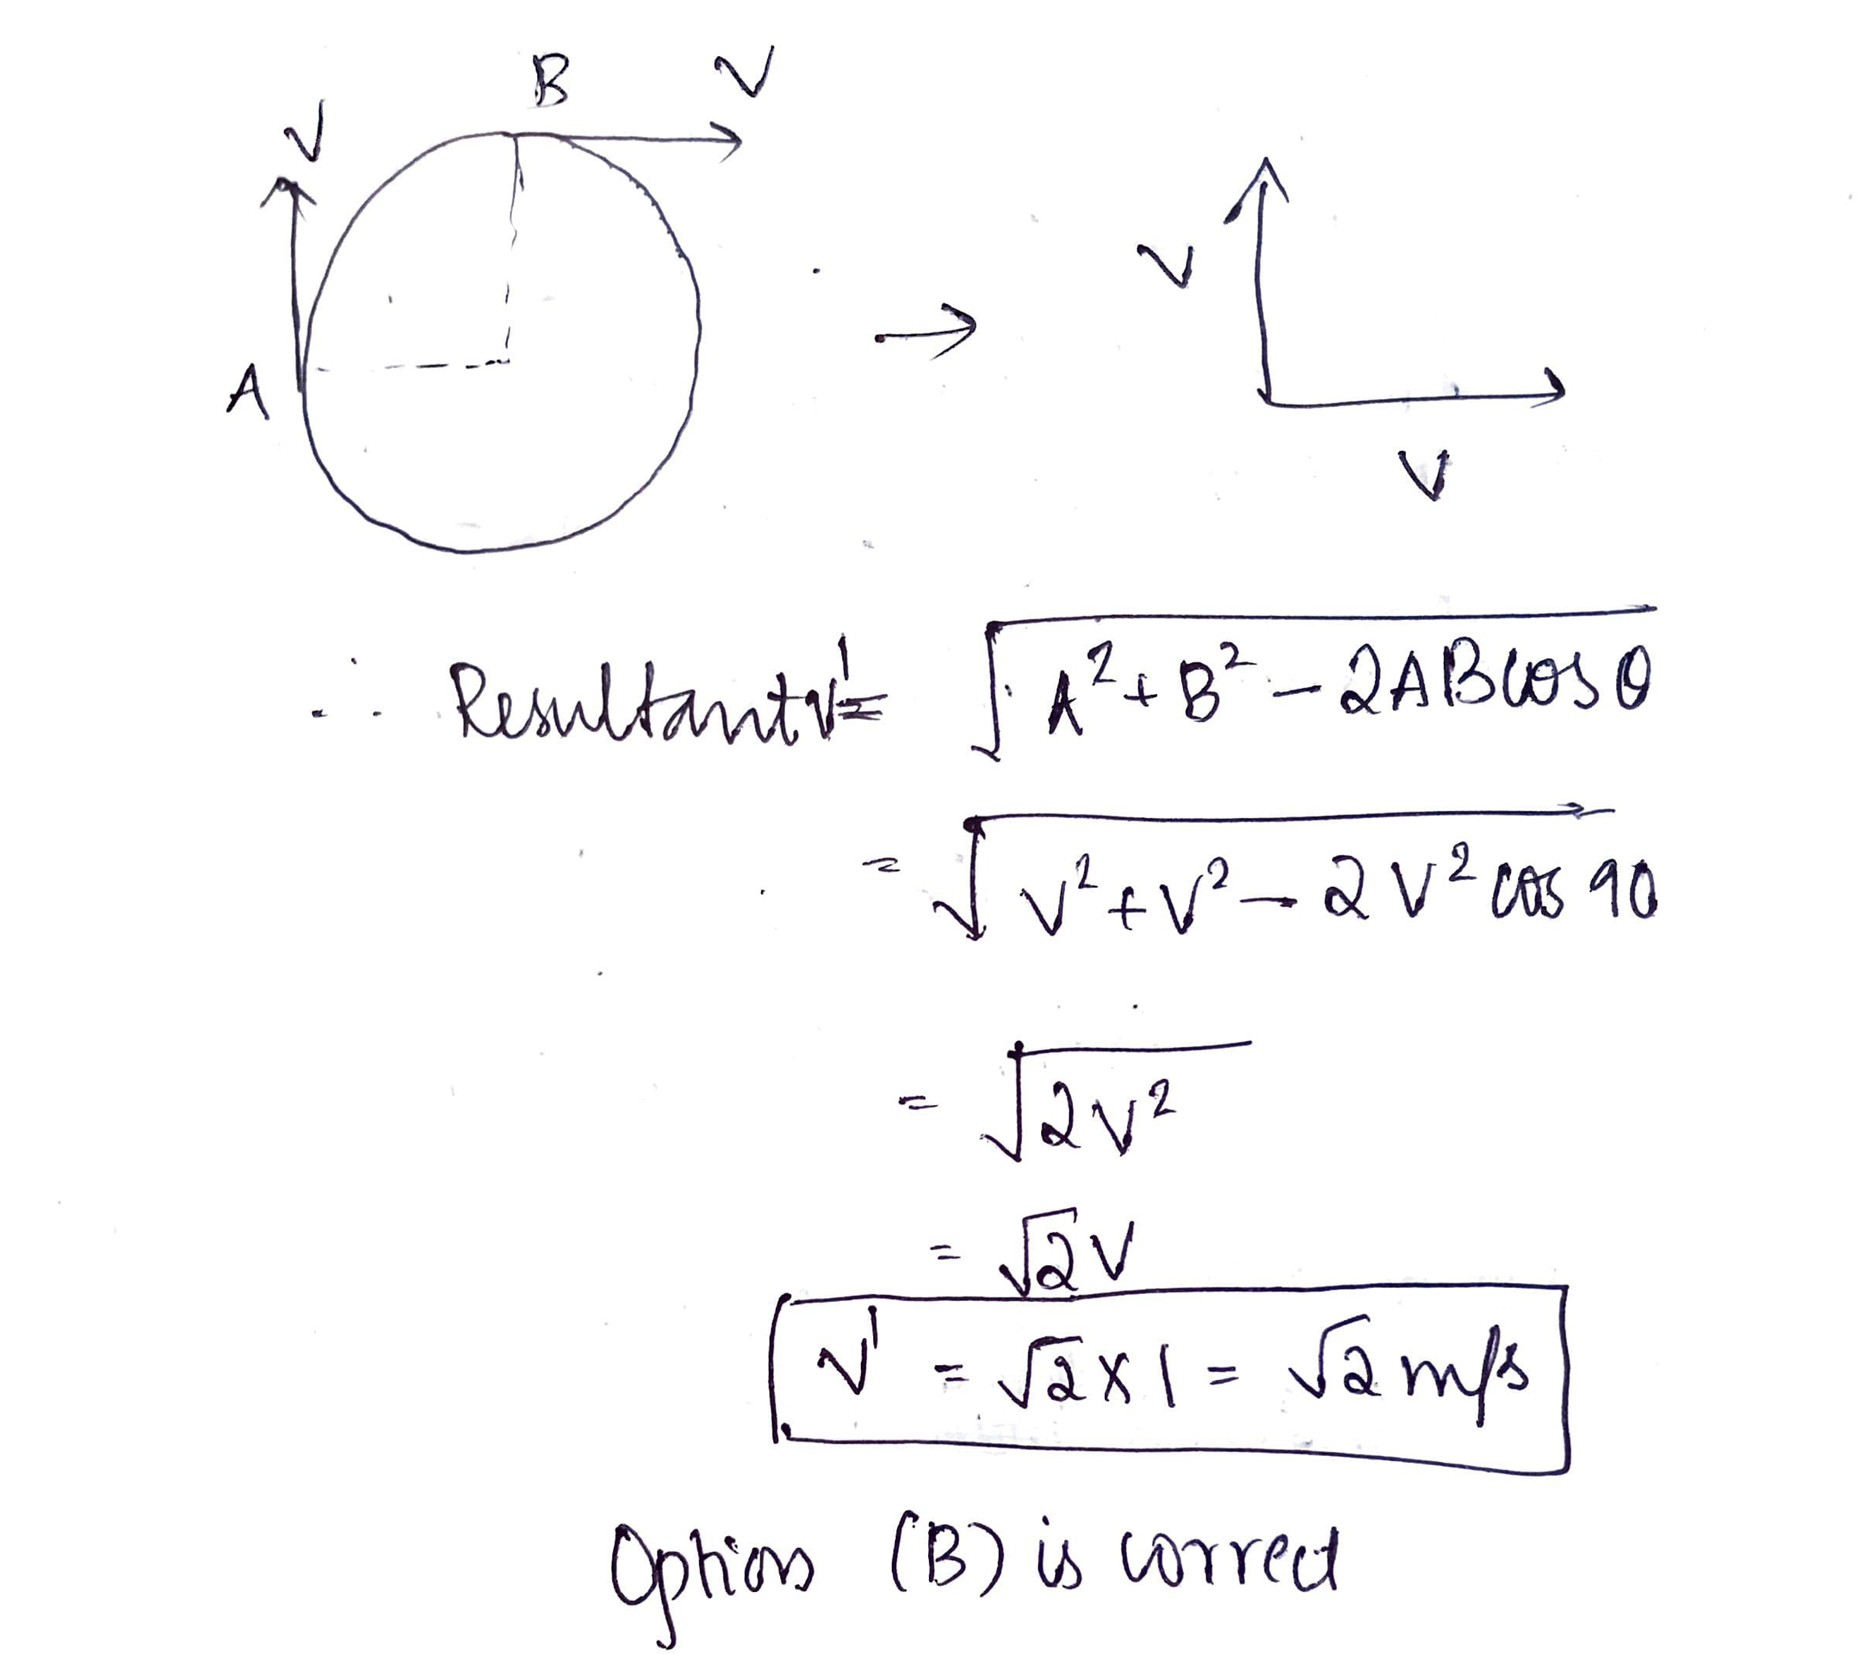 B V
V
A
V
V
∴ Resultant V' = √(A² + B² - 2AB cos θ)
= √(V² + V² - 2V² cos 90)
= √(2V²)
= √2 V
V' = √2 × 1 = √2 m/s
Option (B) is correct